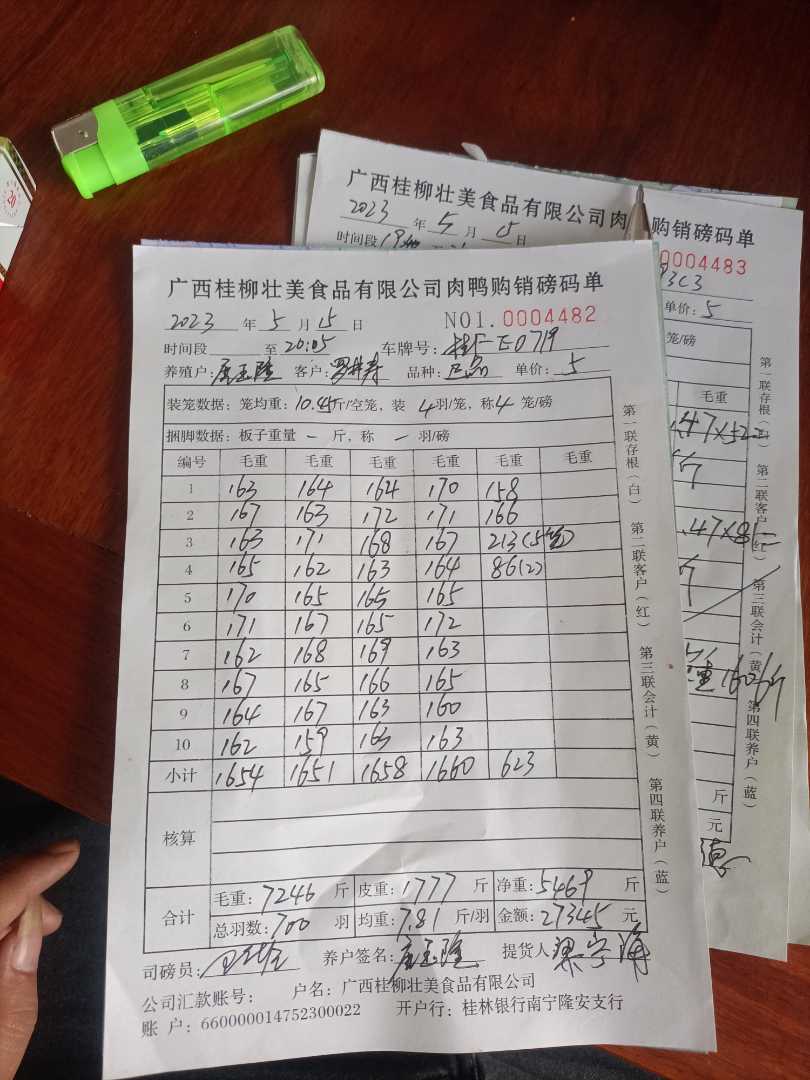 广西桂柳壮美食品有限公司肉 购销磅码单
2023 年 5 月 15 日
0004483
时间段
单价: 5
笼/磅
毛重
第一联存根(白) 第二联客户(红) 第三联会计(黄) 第四联养户(蓝)
斤
元
广西桂柳壮美食品有限公司肉鸭购销磅码单
2023 年 5 月 15 日 NO1. 0004482
时间段 至 20:05 车牌号: 桂 E0719
养殖户: 客户: 品种: 正品 单价: 5
装笼数据: 笼均重: 10.45斤/空笼, 装 4 羽/笼, 称 4 笼/磅
捆脚数据: 板子重量 — 斤, 称 — 羽/磅
编号 毛重 毛重 毛重 毛重 毛重 毛重
1 163 164 164 170 158
2 167 163 172 171 166
3 163 171 168 167 213(5笼)
4 165 162 163 164 86(2)
5 170 165 165 165
6 171 167 165 172
7 162 168 169 163
8 167 165 166 165
9 164 167 163 160
10 162 159 163 163
小计 1654 1651 1658 1660 623
核算
合计
毛重: 7246 斤 皮重: 1777 斤 净重: 5469 斤
总羽数: 700 羽 均重: 7.81 斤/羽 金额: 27345 元
司磅员: 养户签名: 提货人
公司汇款账号: 户名: 广西桂柳壮美食品有限公司
账 户: 660000014752300022 开户行: 桂林银行南宁隆安支行
第一联存根(白) 第二联客户(红) 第三联会计(黄) 第四联养户(蓝)